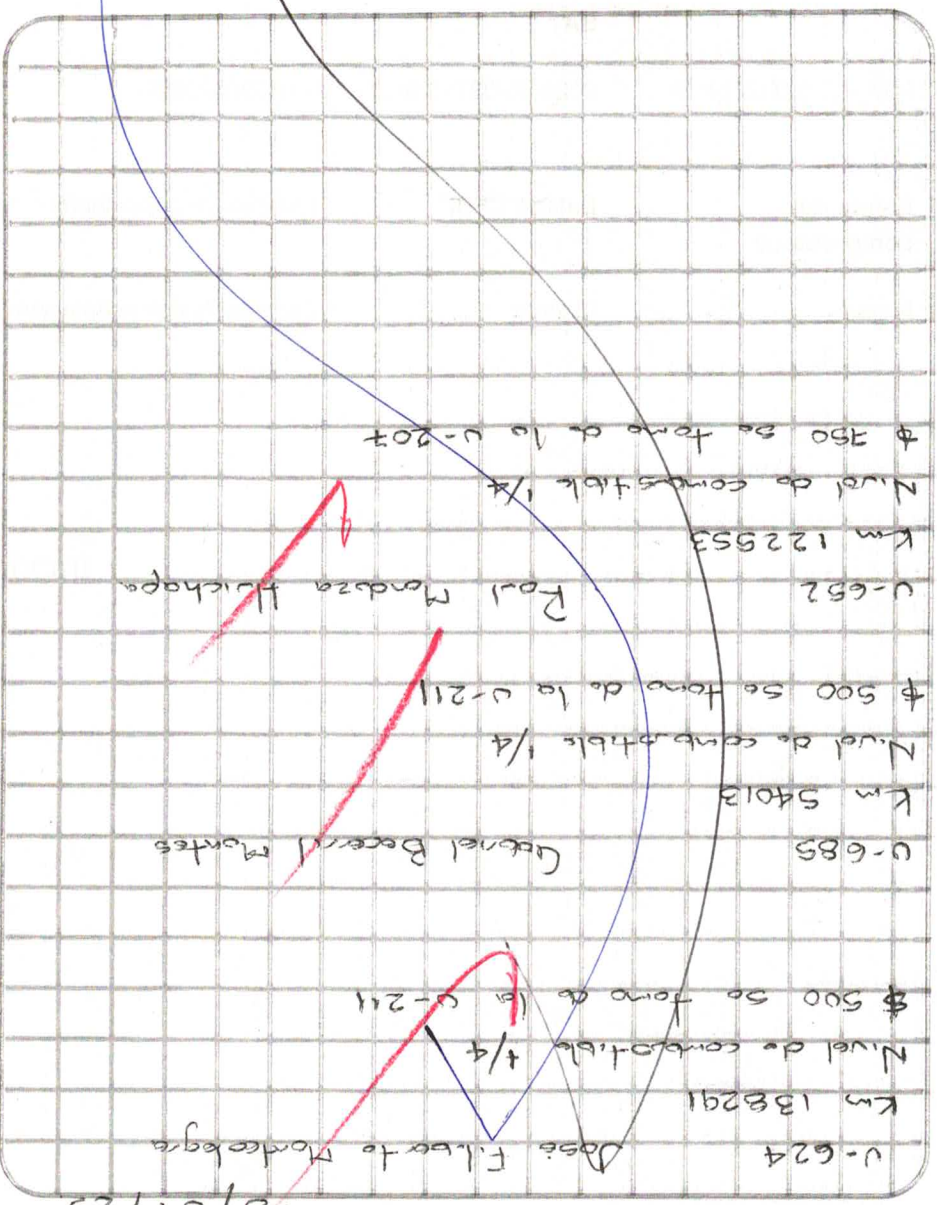 U-624 José Filberto Montealegre
Km 138291
Nivel de combustible 1/4
$ 500 se tomo de la U-211
U-685 Gabriel Becerril Montes
Km 54013
Nivel de combustible 1/4
$ 500 Se tomo de la U-211
U-652 Raul Mendoza Huichapa
Km 122553
Nivel de combustible 1/4
$ 750 se tomo de la U-207